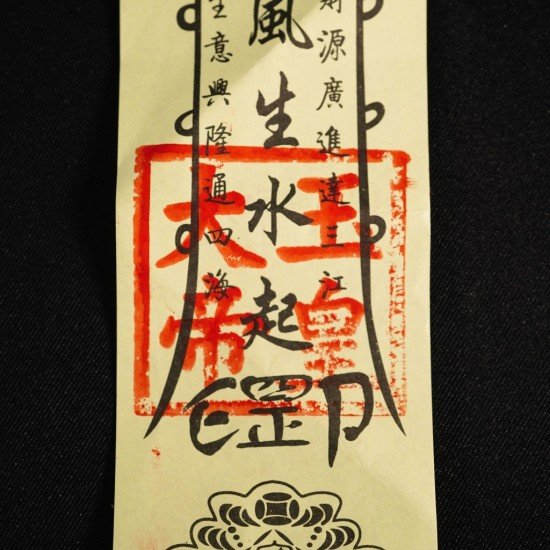 財源廣進達三江
風生水起
生意興隆通四海
玉皇
大帝
罡